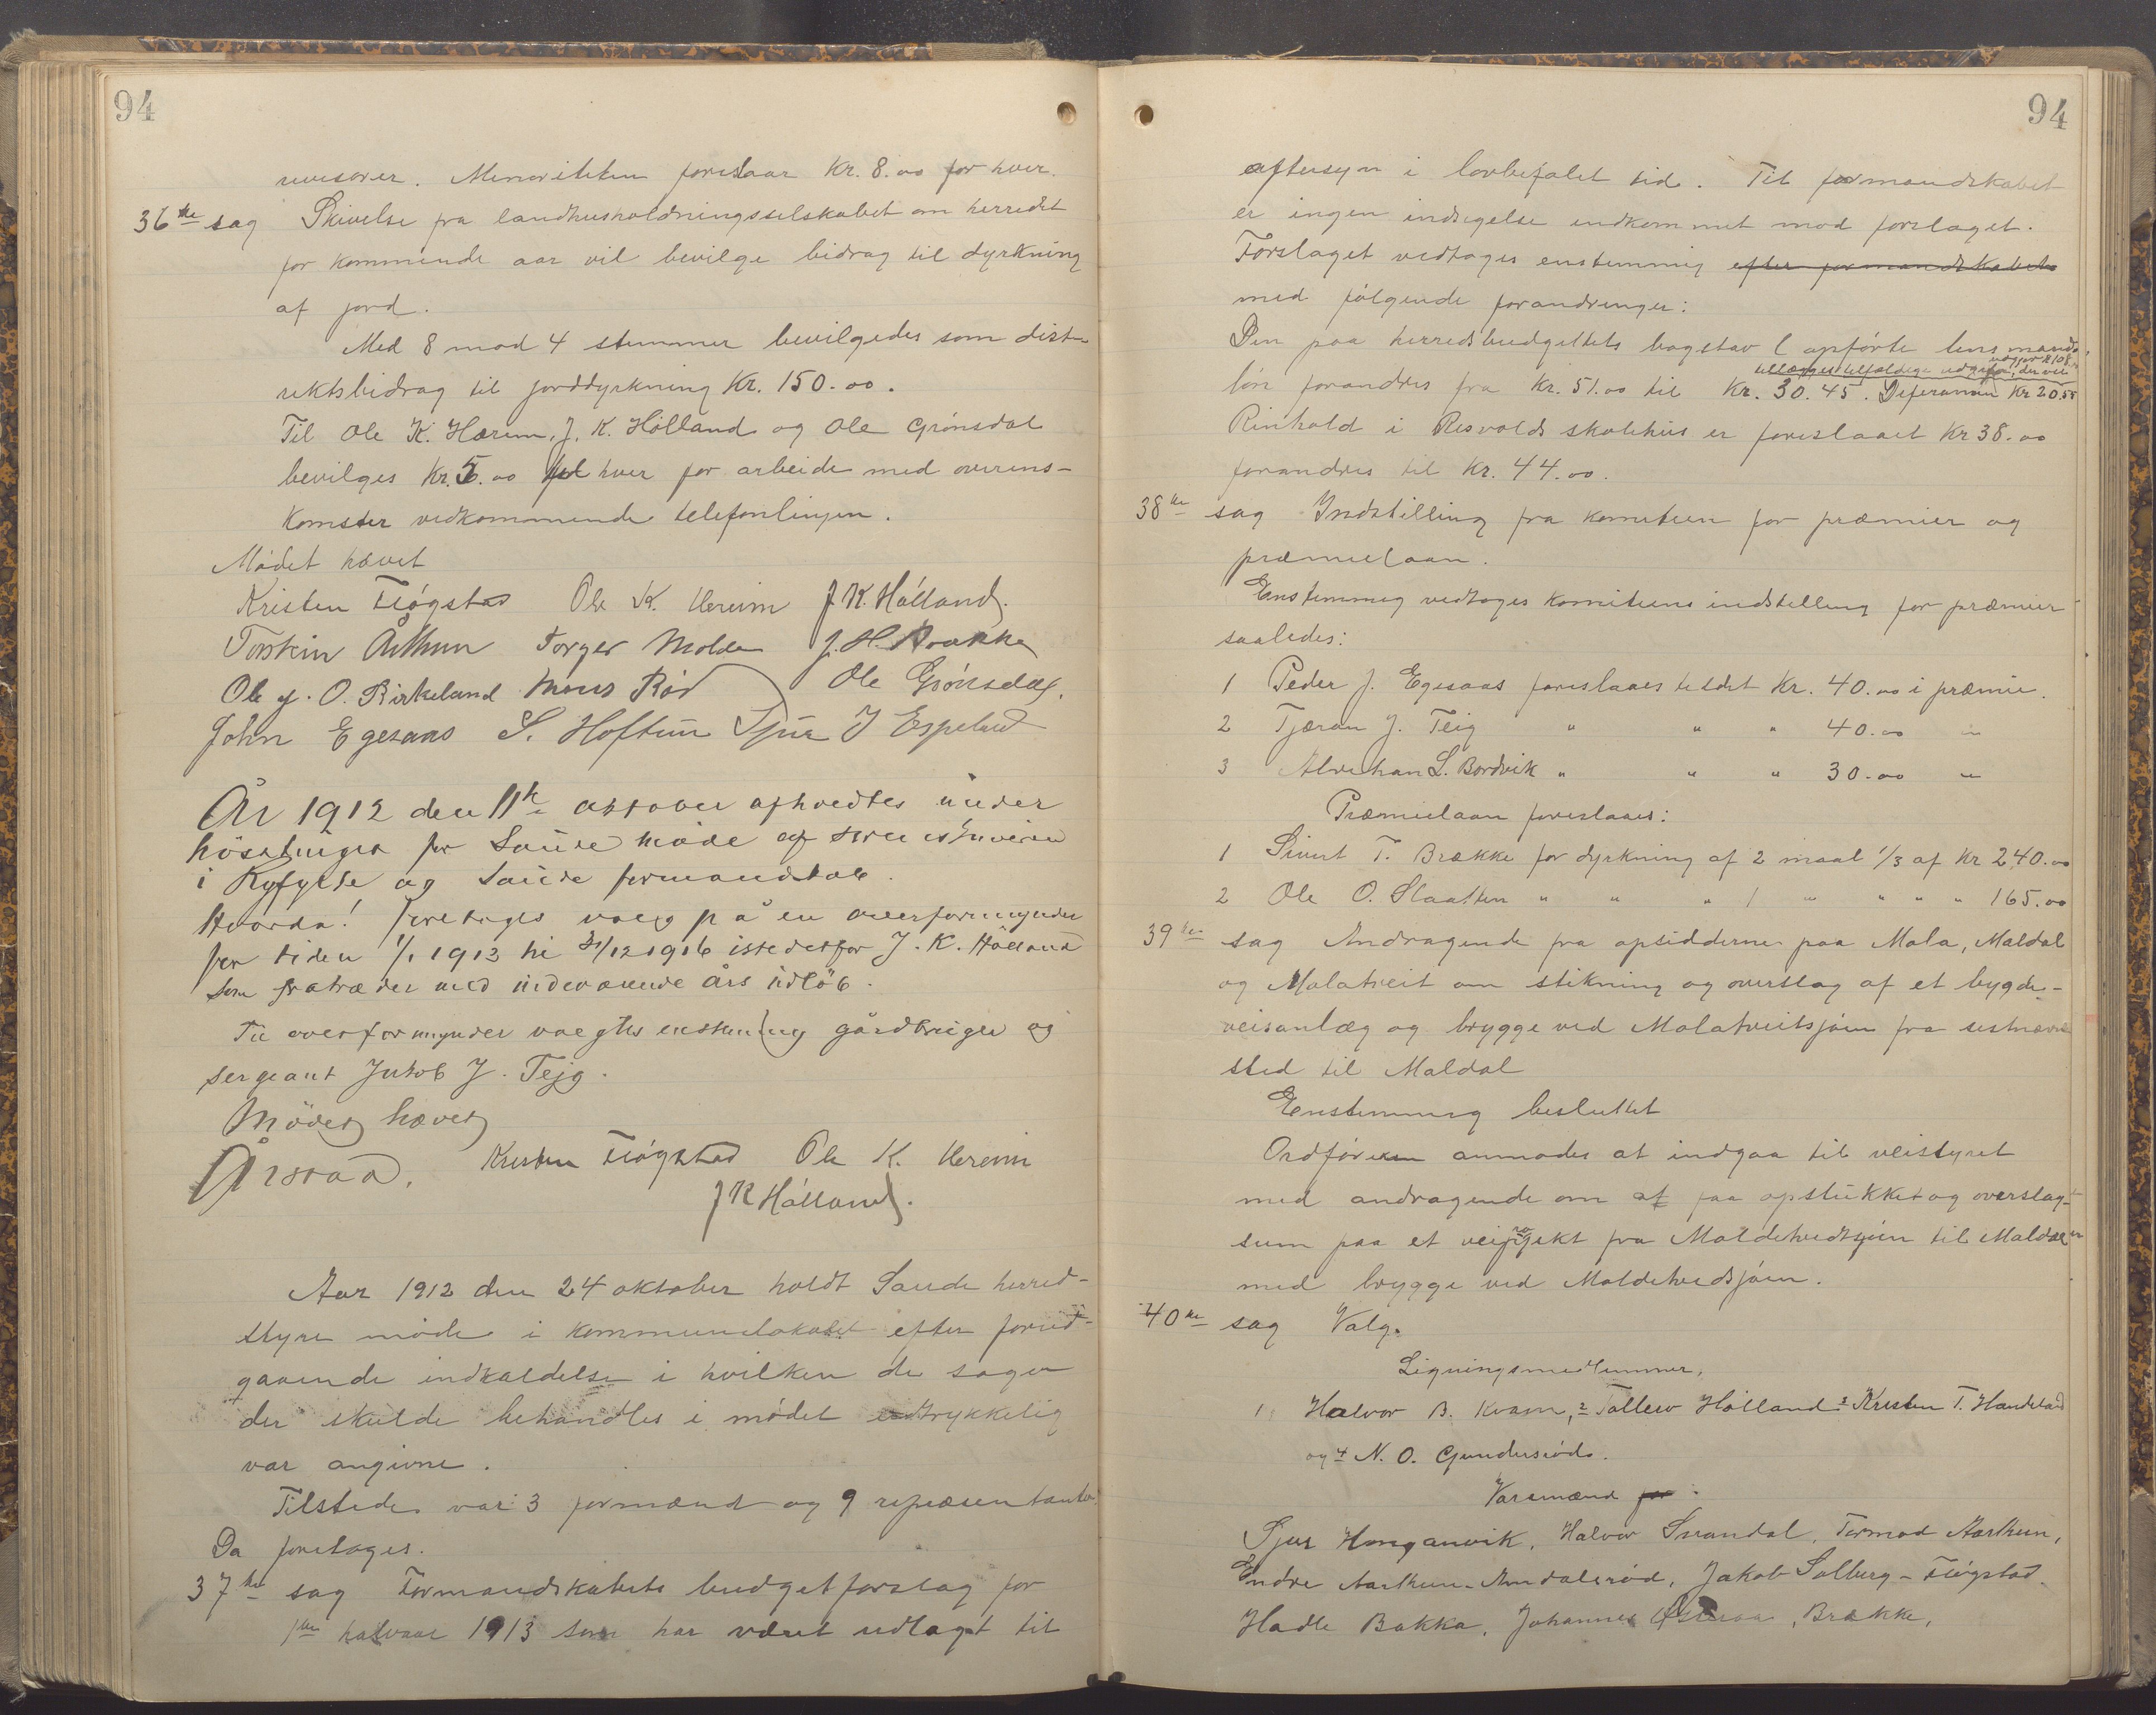 94
revisorer. Menoriteten foreslaar Kr. 8.00 for hver.
36te sag Skivelse fra landhusholdningsselskabet om herredet
for kommende aar vil bevilge bidrag til dyrkning
af jord.
Med 8 mod 4 stemmer bevilgedes som dist-
riktsbidrag til jorddyrkning Kr. 150.00.
Til Ole K. Hærem, J. K. Hølland og Ole Grønsdal
bevilges Kr. 5.00 til hver for arbeide med overens-
komster vedkommende telefonlinjen.
Mødet hævet
Kristen Fløgstad Ole K. Hereim J. K. Hølland.
Torstein Årthun Torger Molde J. H. Brække
Ole J. O. Birkeland Mons Rød Ole Grønsdal.
John Egesaas S. Hoftun Sjur J Espeland
År 1912 den 11te oktober afholdtes under
høsttinget for Saude møde af sorenskriveren
i Ryfylke og Saude formandskab.
Hvorda! foretoges valg på en overformynder
for tiden 1/1 1913 til 31/12 1916 istedetfor J. K. Hølland
som fratræder med indeværende års udløb.
Til overformynder valgtes enstemmig gårdbruger og
sergeant Jakob J. Tejg.
Mødet hævet
Årstad. Kristen Fløgstad Ole K. Hereim
J K Hølland.
Aar 1912 den 24 oktober holdt Saude herred-
styre møde i kommunelokalet efter forud-
gaaende indkaldelse i hvilken de sager
der skulde behandles i mødet udtrykkelig
var angivne.
Tilstede var 3 formænd og 9 repræsentanter.
Da foretoges.
37te sag Formandskabets budgetforslag for
1ste halvaar 1913 som har været udlagt til
94
eftersyn i lovbefalet tid. Til formandskabet
er ingen indsigelse indkommet mod forslaget.
Forslaget vedtoges enstemmig efter formandskabets
med følgende forandringer:
Den paa herredsbudgettets bogstav l opførte lensmands-
løn forandres fra Kr. 51.00 til Kr. 30.45. Diferansen Kr 20.55
tillægges tilfældige udgifter, der vil
udgjør K 108
Rinhold i Risvolds skolehus er foreslaaet Kr 38.00
forandres til Kr. 44.00.
38te sag Indstilling fra komiteen for præmier og
præmielaan.
Enstemmig vedtoges komiteens indstilling for præmier
saaledes:
1 Peder J. Egesaas foreslaaes tildelt Kr. 40.00 i præmie.
2 Tjæran J. Teig " " " 40.00 "
3 Alvehan L. Bordvik " " " 30.00 "
Præmielaan foreslaaes:
1 Sivert T. Brække for dyrkning af 2 maal 1/3 af Kr 240.00
2 Ole O. Slaatten " " " 1 " " " " 165.00
39te sag Andragende fra opsidderne paa Mala, Maldal
og Malatveit om stikning og overslag af et bygde-
veisanlæg og brygge ved Malatveitsjøen fra sistnævnte
sted til Maldal
Enstemmig besluttet
Ordføreren anmodes at indgaa til veistyret
med andragende om at faa opstukket og overslag-
sum paa et veiprojekt fra Maldetvedtsjøen til Maldalen
med brygge ved Maldetvedsjøen.
40te sag Valg.
Ligningsmedlemmer.
1 Halvor B. Kvam, 2 Tollew Hølland 3 Kristen T. Handeland
og 4 N. O. Gundersrød.
Varamænd for:
Sjur Honganvik, Halvor Svandal, Tormod Aarthun,
Endre Aarthun-Amdalsrød, Jakob Solberg-Fløgstad.
Hadle Bakka, Johannes Brække,